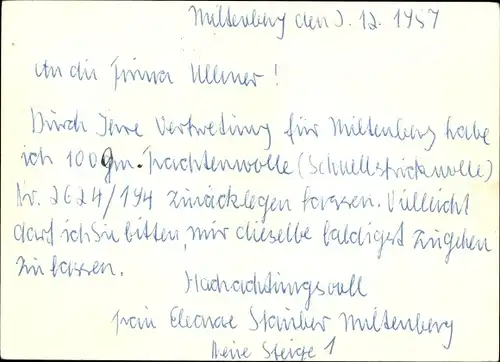 Miltenberg den 2. 12. 1957
An die Firma Ullmer!
Durch Ihre Vertretung für Miltenberg habe
ich 100 gm. Trachtenwolle (Schnellstrickwolle)
Nr. 2624/194 zurücklegen lassen. Vielleicht
darf ich Sie bitten, mir dieselbe baldigst zugehen
zu lassen.
Hochachtungsvoll
Frau Eleonore Stauber Miltenberg
Neue Steige 1